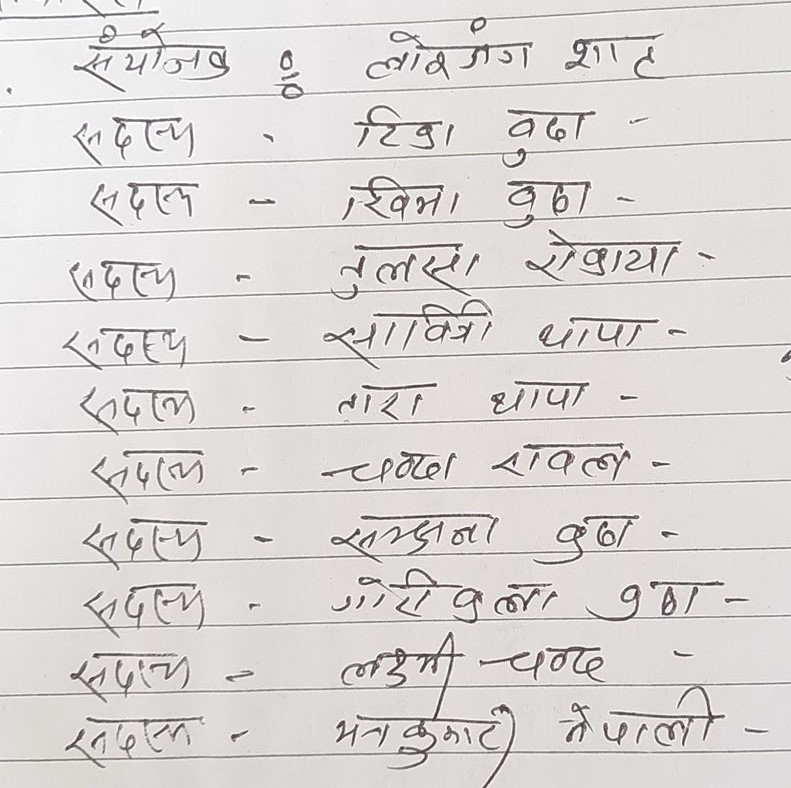 संयोजक : लोक जंग शाह
सदस्य - टिका बुढा -
सदस्य - खिमा बुढा -
सदस्य - तुलसा रोकाया -
सदस्य - सावित्री थापा -
सदस्य - तारा थापा -
सदस्य - चन्द्रा रावल -
सदस्य - सम्झना बुढा -
सदस्य - गोरीकला बुढा -
सदस्य - लक्ष्मी चन्द -
सदस्य - मनकुमारी नेपाली -